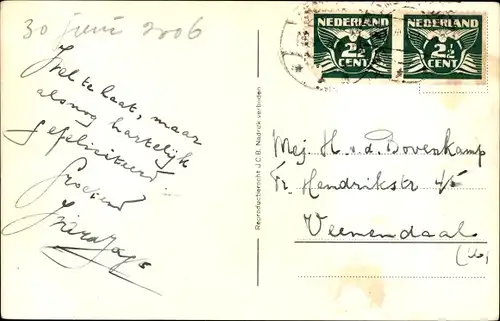 30 juni 2006
Wel te laat, maar
alsnog hartelijk
gefeliciteerd
Groetend
NEDERLAND
2½
CENT
NEDERLAND
2½
CENT
Reproductierecht J.C.B. Nadruk verboden
Mej. H. v. d. Bovenkamp
Fr. Hendrikstr 45
Veenendaal
(U)